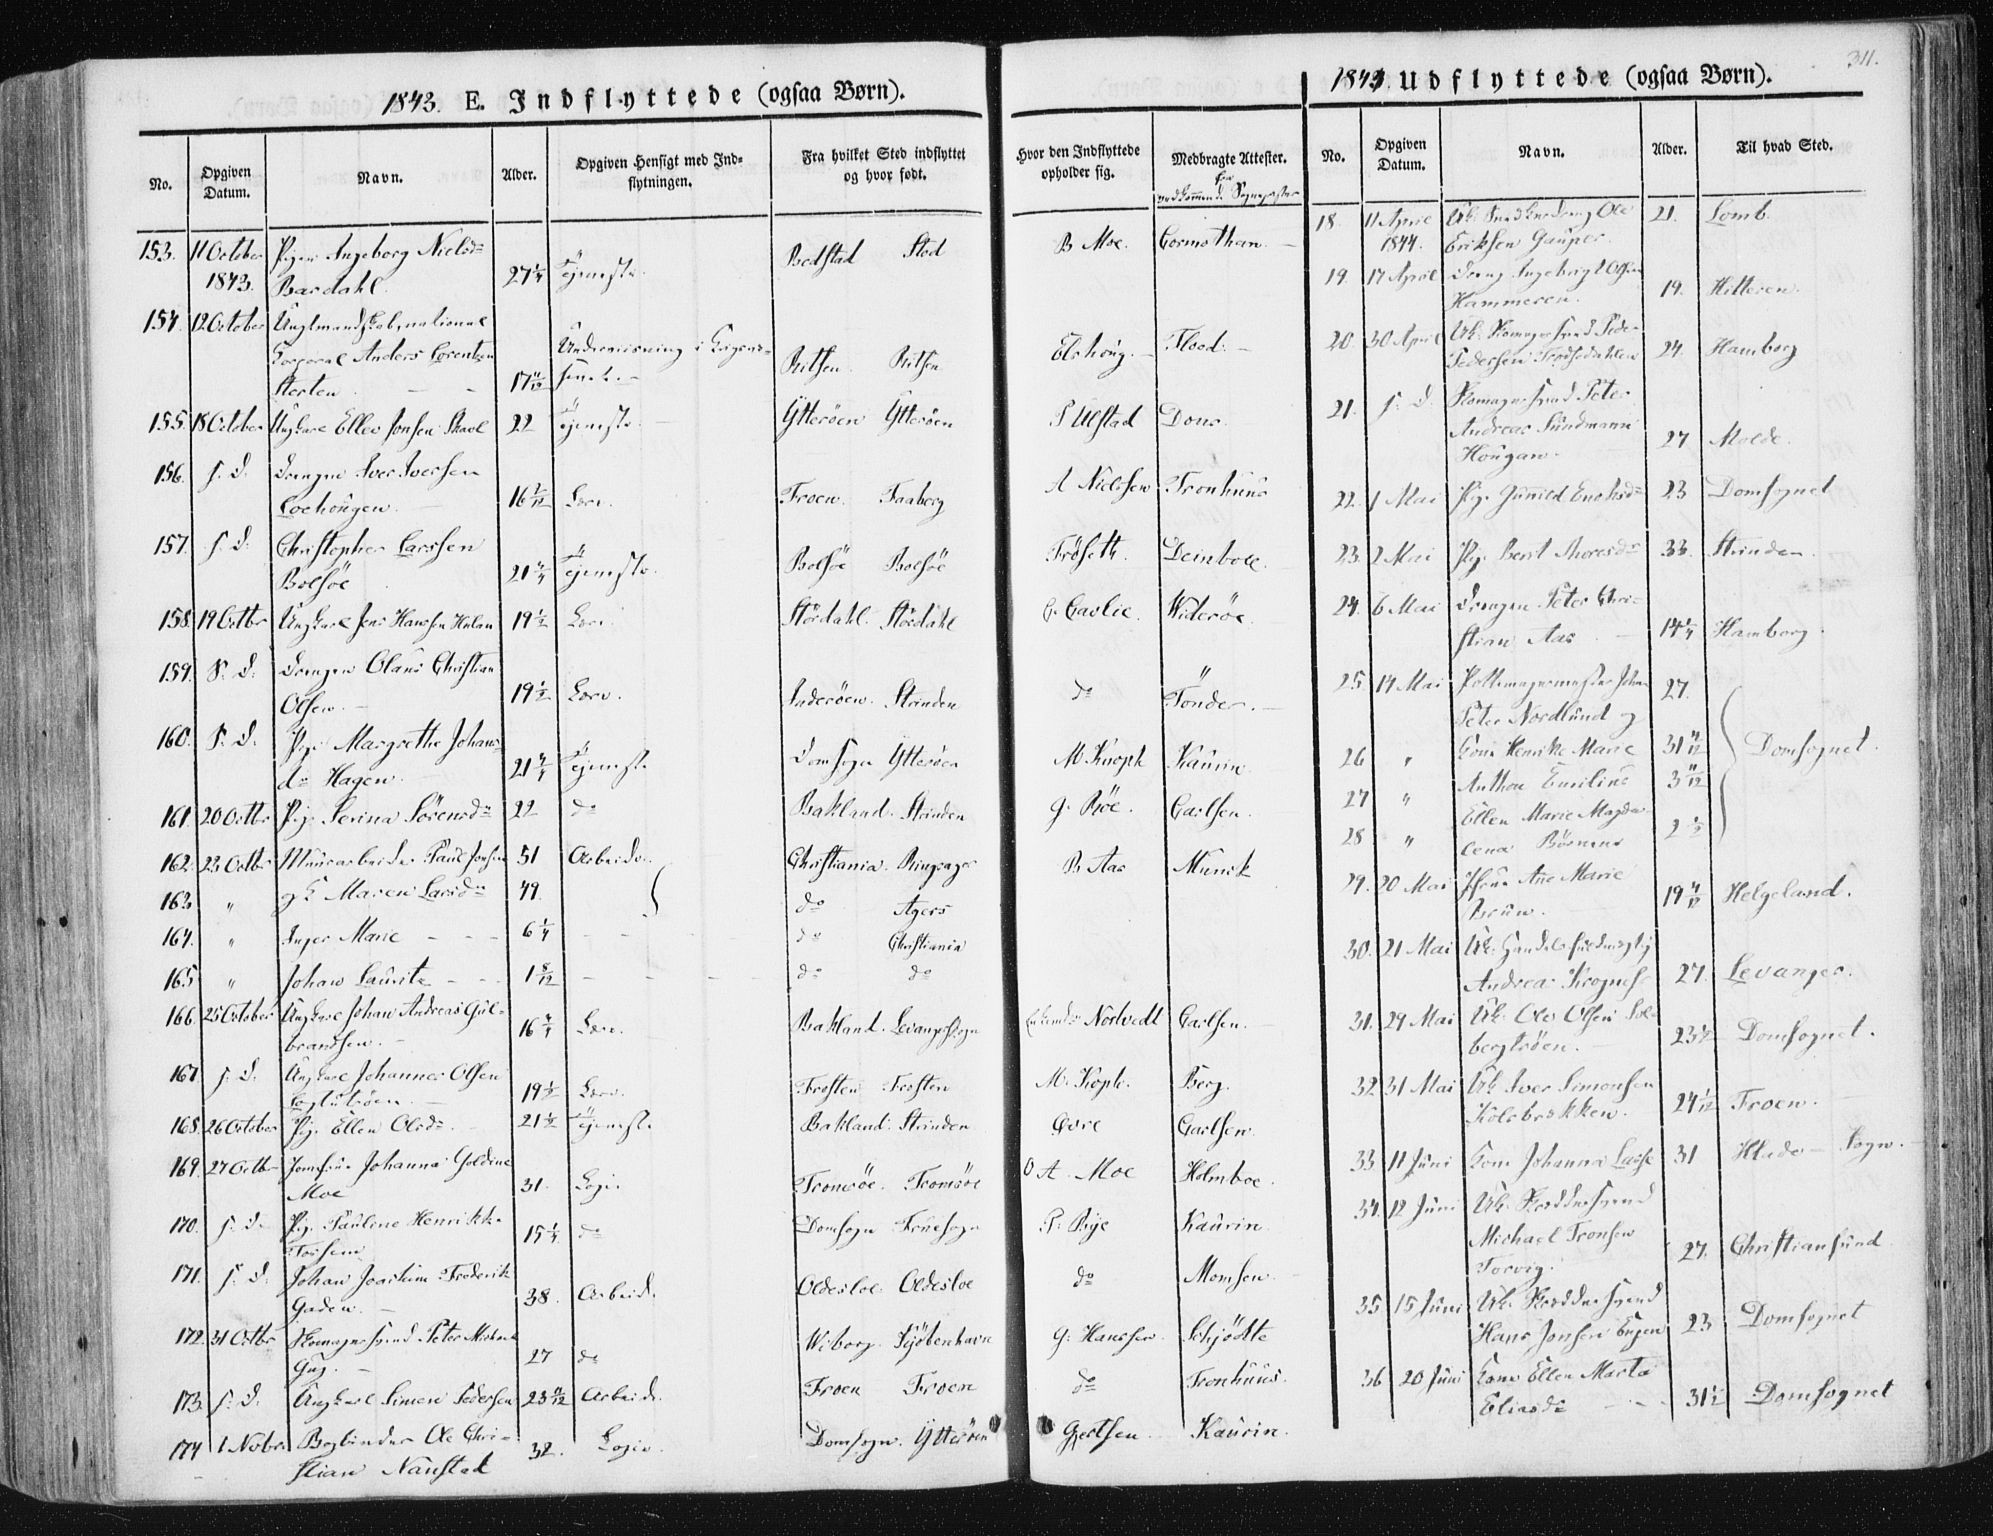 311.
1843. E. Indflyttede (ogsaa Børn).
No. Opgiven Datum. Navn. Alder. Opgiven Hensigt med Indflytningen. Fra hvilket Sted indflyttet og hvor født. Hvor den Indflyttede opholder sig. Medbragte Attester.
153. 11 October Pigen Ingeborg Nielsd
1843. Bardahl. 27 1/4 Tjeneste. Bedstad Stod B Moe. Cormothan.
154. 12 October
Corporal Anders Lorentzen
Sterten 17 11/12 Ritsen. Ritsen Elshöug. Floed.
155. 18 October Ungkarl Ellev Jonsen Skavl 22 Tjeneste. Ytteröen Ytteröen P Ulstad Dons
156. s. D. Drengen Iver Iversen
Loehöugen. 16 7/12 Lære. Froen. Faaberg A Nielsen Tronhuus
157. s. D. Christopher Larssen
Bolsöe 21 3/4 Tjeneste. Bolsöe Bolsöe Tröseth. Deinboll.
158. 19 Octbr Ungkarl Jens Hanssen Helan 19 1/2 Lære. Stördahl. Stördahl G. Gaslie. Wideröe.
159. S. D. Drengen Olaus Christian
Olsen. 19 1/2 Lære. Inderöen. Strinden do Tönder.
160. s. D. Pige Margrethe Johans
d. Hagen 21 3/4 Tjeneste Domsogn Ytteröen M. Knoph Kaurin
161. 20 Octbr Pige Serina Sörensd 22 do Bakland. Strinden G. Böe. Carlsen.
162. 23 Octbr Muurarbeider Paul Jonsen 51 Arbeide. Christiania. Ringsager B. Aas Munck
163. " g K Maren Larsd 49. do Agers
164. " Inger Marie 6 1/4 do Christiania
165. " Johan Lauritz 1 8/12 do do
166. 25 October Ungkarl Johan Andreas Gul-
brandsen. 16 3/4 Lære. Bakland. Levangersogn Nortvedt Carlsen.
167. s. D. Ungkarl Johannes Olsen
19 1/2 Lære. Frosten Frosten M. Koph. Berg.
168. 26 October Pige Ellen Olsd. 21 1/2 Tjeneste Bakland. Strinden Qvre Carlsen.
169. 27 Octbr Jomfrue Johanna Goldine
Moe 31. Logi. Tromsöe. Tromsöe O A. Moe Holmboe.
170. s. D. Pige Pauline Henrikke
Tossem 15 1/4 do Domsogn Fruesogn P. Bye Kaurin.
171. s. D. Johan Joachim Frederik
Gaden. 38. Arbeide. Oldesloe Oldesloe do Momsen.
172. 31 Octbr Skomagersvend Peter Michael
Gug. 27 do Wiborg. Kjöbenhavn G. Hanssen. Schjödte
173. s. D. Ungkarl Simen Pedersen 23 11/12 Arbeide. Froen Froen do Tronhuus.
174 1 Novbr Bogbinder Ole Chri-
stian Nanstad 32. Logie. Domsogn. Ytteröen Gjertsen. Kaurin.
1844. Udflyttede (ogsaa Børn).
No. Opgiven Datum. Navn. Alder. Til hvad Sted.
18. 11 April Ole
1844. Eriksen Gauper. 21. Lomb.
19. 17 April Dreng Ingebrigt Olsen
Hammeren. 19. Hitteren.
20. 30 April Uk. Skomagersvend Peder
Pedersen 24. Hamborg
21. s. D. Skomagersvend Peter
Andreas Sundmann
Hougan. 27 Molde.
22. 1 Mai Pig. Gunild Enoksd 23 Domsognet
23. 2 Mai Pig. Berit Thoresd 33. Strinden.
24. 6 Mai Drengen Peter Chri-
stian Aas 14 1/4 Hamborg.
25. 14 Mai Pottemagermester Johan
Peter Nordlund og 27.
26 " Kone Henrikke Marie 31 11/12
27 " Anthon Emilius 3 11/12 Domsognet.
28 " Ellen Marie Magda-
lena Börnene 2 1/2
29. 20 Mai Jfrue Ane Marie
Bruun. 19 11/12 Helgeland.
30. 21 Mai Uk. Handelsfuldmægtig
Andreas Krognes 27. Levanger.
31. 29 Mai Uk. Ole Olsen Sol-
bergtröen. 23 1/2 Domsognet.
32 31 Mai Uk Iver Simonsen
Kolsbækken. 24 1/12 Froen.
33 11 Juni Kone Johanna Lasse 31 Hlade-Sogn.
34. 12 Juni Uk. Skræddersvend
Michael Tronsen
Torvig. 27. Christiansund
35 15 Juni Uk. Skræddersvend
Hans Jonsen Engen 23 Domsognet
36 20 Juni Kone Ellen Marta
Eliasd 31 1/2 Domsognet